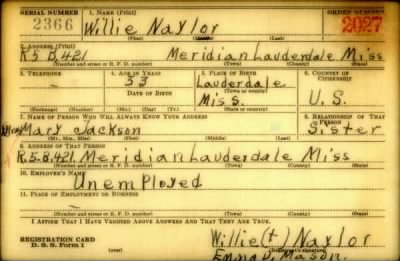 SERIAL NUMBER 1. NAME (Print) ORDER NUMBER
2366 Willie Naylor 2027
(First) (Middle) (Last)
2. ADDRESS (Print)
R5 B.421 Meridian Lauderdale Miss
(Number and street or R. F. D. number) (Town) (County) (State)
3. TELEPHONE 4. AGE IN YEARS 5. PLACE OF BIRTH 6. COUNTRY OF CITIZENSHIP
— 33 Lauderdale
DATE OF BIRTH Miss. U.S.
(Exchange) (Number) (Mo.) (Day) (Yr.) (State or country)
7. NAME OF PERSON WHO WILL ALWAYS KNOW YOUR ADDRESS 8. RELATIONSHIP OF THAT PERSON
Mary Jackson Sister
(Mr., Mrs., Miss) (First) (Middle) (Last)
9. ADDRESS OF THAT PERSON
R.5.B.421 Meridian Lauderdale Miss
(Number and street or R. F. D. number) (Town) (County) (State)
10. EMPLOYER'S NAME
Unemployed
11. PLACE OF EMPLOYMENT OR BUSINESS
—
(Number and street or R. F. D. number) (Town) (County) (State)
I AFFIRM THAT I HAVE VERIFIED ABOVE ANSWERS AND THAT THEY ARE TRUE.
REGISTRATION CARD Willie (+) Naylor
D. S. S. Form 1 (Registrant's signature)
Emma D. Mason.